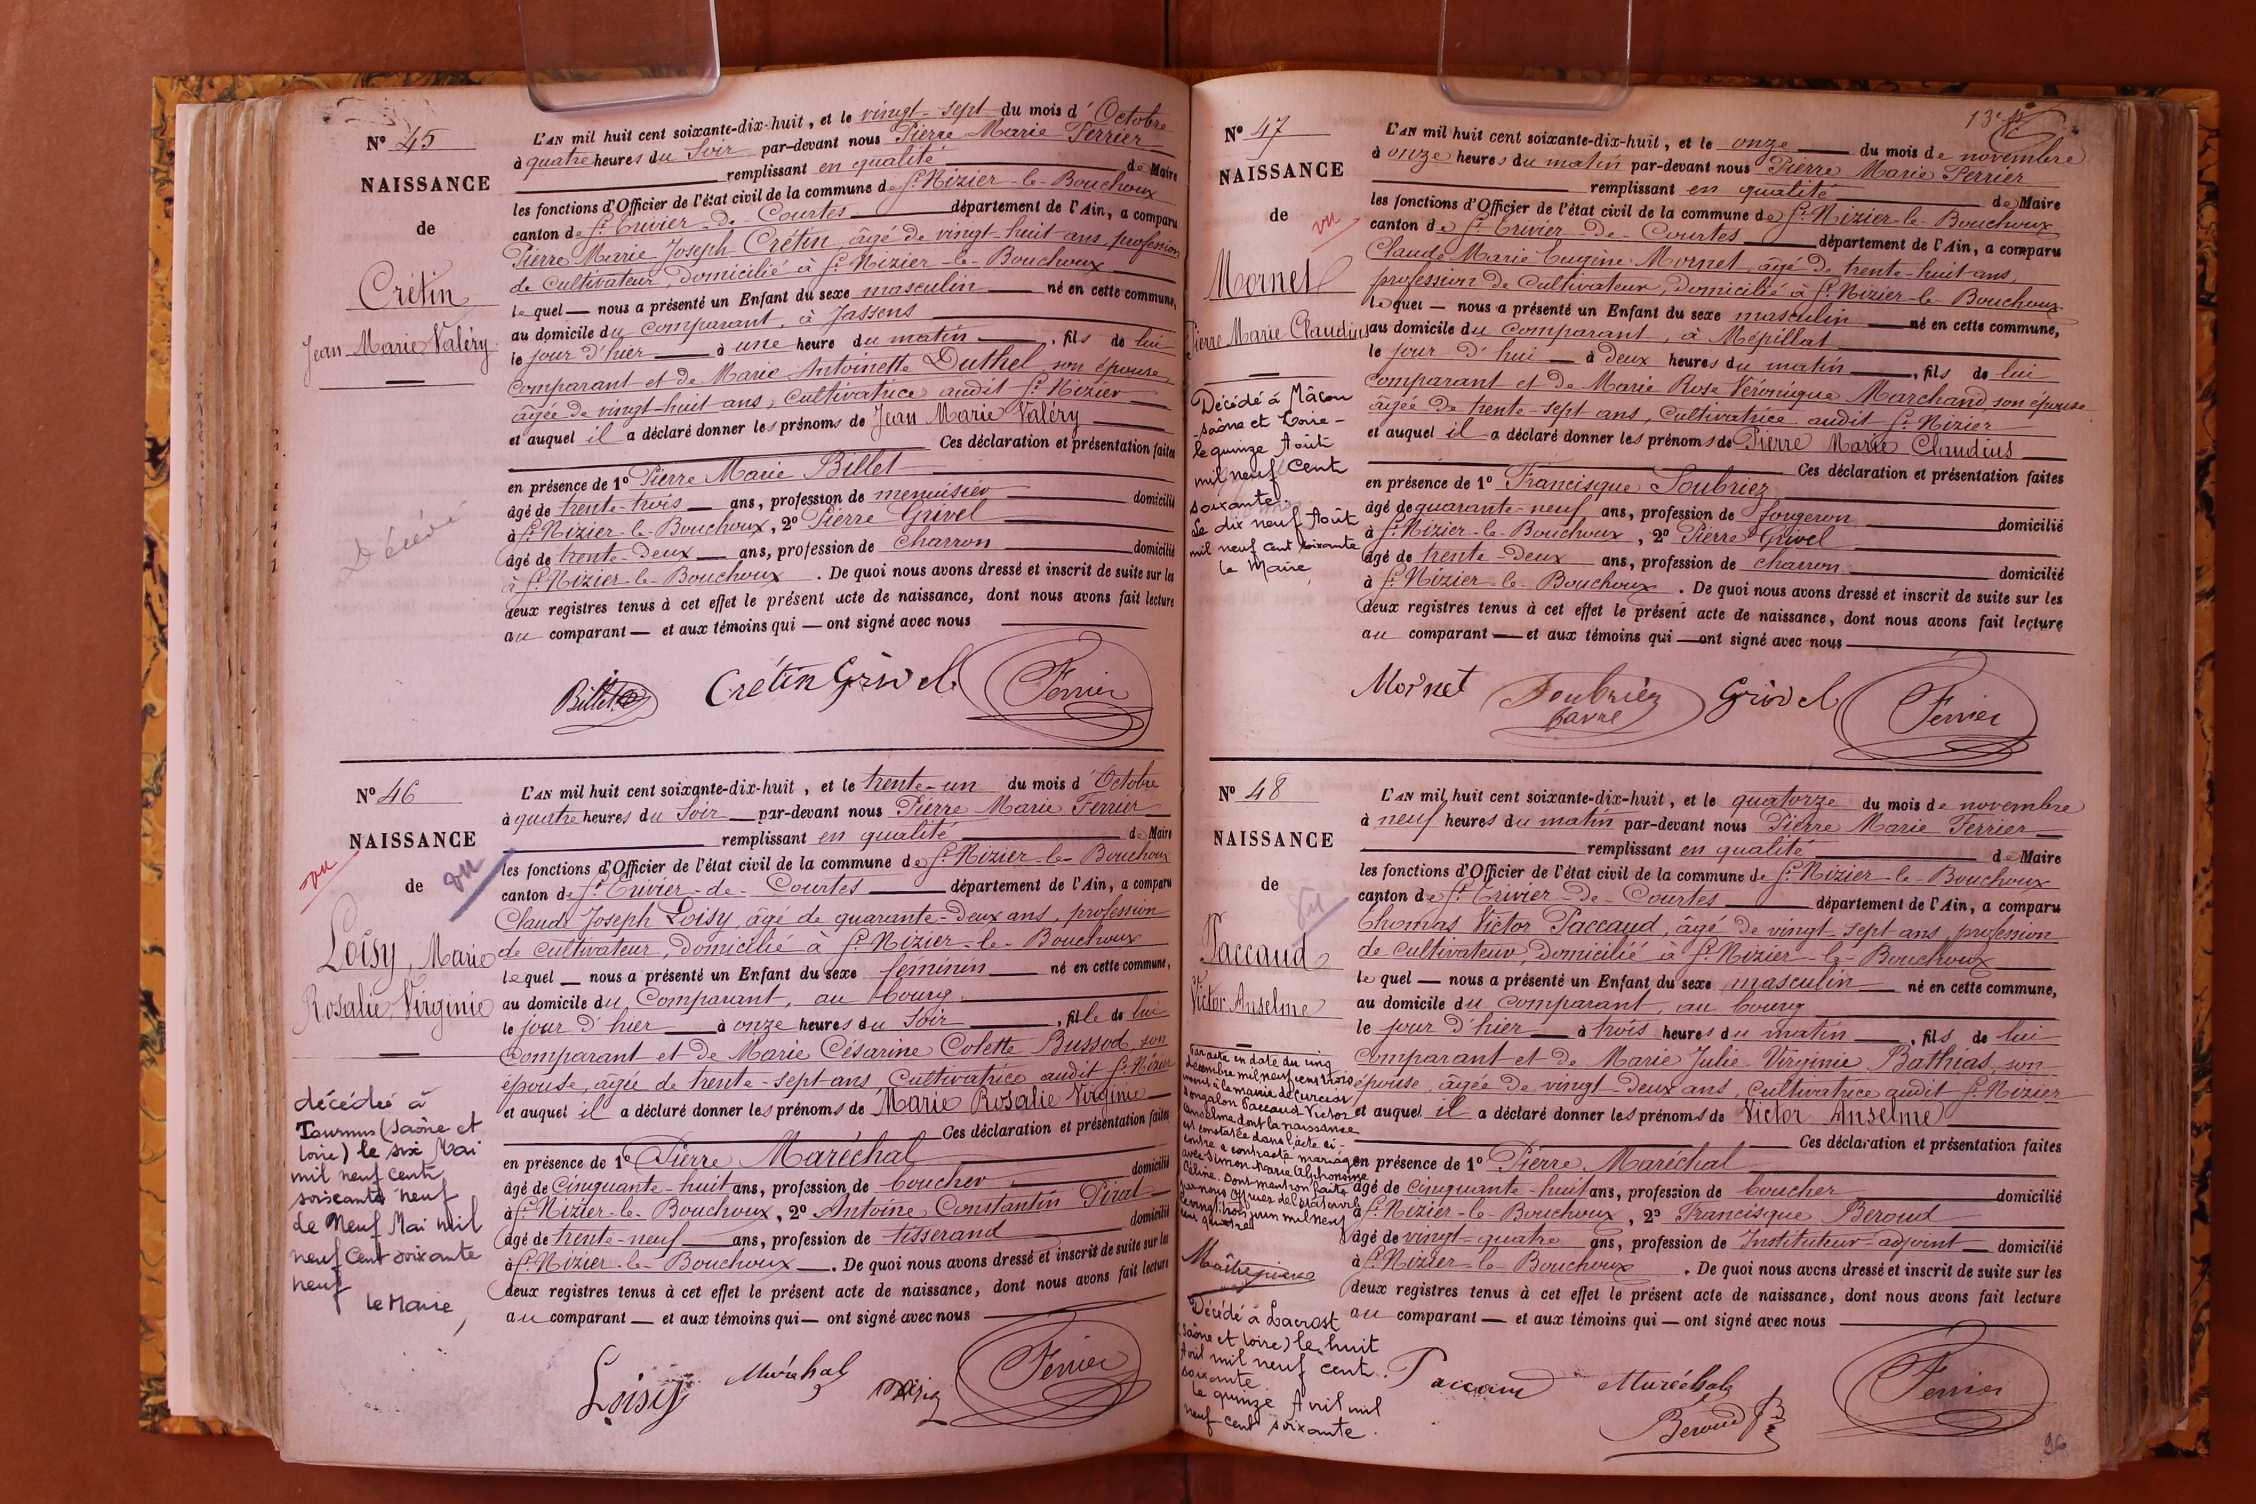 Nº 45
NAISSANCE
de
Crétin
Jean Marie Valéry
Décédé
L'AN mil huit cent soixante-dix-huit, et le vingt-sept du mois d'Octobre
à quatre heures du Soir par-devant nous Pierre Marie Ferrier
remplissant en qualité de Maire
les fonctions d'Officier de l'état civil de la commune de St. Nizier-le-Bouchoux
canton de St. Trivier-de-Courtes département de l'Ain, a comparu
Pierre Marie Joseph Crétin, âgé de vingt-huit ans, profession
de cultivateur, domicilié à St. Nizier-le-Bouchoux
le quel — nous a présenté un Enfant du sexe masculin né en cette commune,
au domicile du comparant, à Jassens
le jour d'hier à une heure du matin, fils de lui
comparant et de Marie Antoinette Duthel, son épouse,
âgée de vingt-huit ans, cultivatrice audit St. Nizier
et auquel il a déclaré donner les prénoms de Jean Marie Valéry
Ces déclaration et présentation faites
en présence de 1º Pierre Marie Billet
âgé de trente-trois ans, profession de menuisier domicilié
à St. Nizier-le-Bouchoux, 2º Pierre Grivel
âgé de trente-deux ans, profession de charron domicilié
à St. Nizier-le-Bouchoux. De quoi nous avons dressé et inscrit de suite sur les
deux registres tenus à cet effet le présent acte de naissance, dont nous avons fait lecture
au comparant — et aux témoins qui — ont signé avec nous
Billet Crétin Grivel Ferrier
Nº 46
NAISSANCE
de
vu
vu
Loisy, Marie
Rosalie Virginie
décédée à
Tournus (Saône et
Loire) le six Mai
mil neuf cent
soixante neuf
de Neuf Mai mil
neuf cent soixante
neuf
le Maire,
L'AN mil huit cent soixante-dix-huit, et le trente-un du mois d'Octobre
à quatre heures du Soir par-devant nous Pierre Marie Ferrier
remplissant en qualité de Maire
les fonctions d'Officier de l'état civil de la commune de St. Nizier-le-Bouchoux
canton de St. Trivier-de-Courtes département de l'Ain, a comparu
Claude Joseph Loisy, âgé de quarante-deux ans, profession
de cultivateur, domicilié à St. Nizier-le-Bouchoux
le quel — nous a présenté un Enfant du sexe féminin né en cette commune,
au domicile du comparant, au bourg
le jour d'hier à onze heures du Soir, fille de lui
comparant et de Marie Césarine Colette Bussod, son
épouse, âgée de trente-sept ans, cultivatrice audit St. Nizier
et auquel il a déclaré donner les prénoms de Marie Rosalie Virginie
Ces déclaration et présentation faites
en présence de 1º Pierre Maréchal
âgé de cinquante-huit ans, profession de boucher domicilié
à St. Nizier-le-Bouchoux, 2º Antoine Constantin Pirat
âgé de trente-neuf ans, profession de tisserand domicilié
à St. Nizier-le-Bouchoux. De quoi nous avons dressé et inscrit de suite sur les
deux registres tenus à cet effet le présent acte de naissance, dont nous avons fait lecture
au comparant — et aux témoins qui — ont signé avec nous
Loisy Maréchal Ferrier
13e
Nº 47
NAISSANCE
de
vu
Mornet
Pierre Marie Claudius
Décédé à Mâcon
Saône et Loire -
le quinze Août
mil neuf Cent
soixante.
Le dix neuf Août
mil neuf cent soixante
le Maire,
L'AN mil huit cent soixante-dix-huit, et le onze du mois de novembre
à onze heures du matin par-devant nous Pierre Marie Ferrier
remplissant en qualité de Maire
les fonctions d'Officier de l'état civil de la commune de St. Nizier-le-Bouchoux
canton de St. Trivier-de-Courtes département de l'Ain, a comparu
Claude Marie Eugène Mornet, âgé de trente-huit ans,
profession de cultivateur, domicilié à St. Nizier-le-Bouchoux
le quel — nous a présenté un Enfant du sexe masculin né en cette commune,
au domicile du comparant, à Mépillat
le jour d'hui à deux heures du matin, fils de lui
comparant et de Marie Rose Véronique Marchand, son épouse
âgée de trente-sept ans, cultivatrice audit St. Nizier
et auquel il a déclaré donner les prénoms de Pierre Marie Claudius
Ces déclaration et présentation faites
en présence de 1º Francisque Soubriez
âgé de quarante-neuf ans, profession de forgeron domicilié
à St. Nizier-le-Bouchoux, 2º Pierre Grivel
âgé de trente-deux ans, profession de charron domicilié
à St. Nizier-le-Bouchoux. De quoi nous avons dressé et inscrit de suite sur les
deux registres tenus à cet effet le présent acte de naissance, dont nous avons fait lecture
au comparant — et aux témoins qui — ont signé avec nous
Mornet Soubriez Grivel Ferrier
Nº 48
NAISSANCE
de
Vu
Paccaud
Victor Anselme
Par acte en date du cinq
décembre mil neuf cent trois
à la mairie de Curciat
Dongalon Paccaud Victor
Anselme dont la naissance
est constatée dans l'acte ci-
contre a contracté mariage
avec Simon Marie Alphonsine
Céline. Dont mention faite
par nous Officier de l'état civil
le vingt trois juin mil neuf
cent quatre
Décédé à Lacrost
(Saône et Loire) le huit
Avril mil neuf cent
soixante.
Le quinze Avril mil
neuf cent soixante.
L'AN mil huit cent soixante-dix-huit, et le quatorze du mois de novembre
à neuf heures du matin par-devant nous Pierre Marie Ferrier
remplissant en qualité de Maire
les fonctions d'Officier de l'état civil de la commune de St. Nizier-le-Bouchoux
canton de St. Trivier-de-Courtes département de l'Ain, a comparu
Thomas Victor Paccaud, âgé de vingt-sept ans, profession
de cultivateur, domicilié à St. Nizier-le-Bouchoux
le quel — nous a présenté un Enfant du sexe masculin né en cette commune,
au domicile du comparant, au bourg
le jour d'hier à trois heures du matin, fils de lui
comparant et de Marie Julie Virginie Bathias, son
épouse, âgée de vingt-deux ans, cultivatrice audit St. Nizier
et auquel il a déclaré donner les prénoms de Victor Anselme
Ces déclaration et présentation faites
en présence de 1º Pierre Maréchal
âgé de cinquante-huit ans, profession de boucher domicilié
à St. Nizier-le-Bouchoux, 2º Francisque Beroud
âgé de vingt-quatre ans, profession de Instituteur-adjoint domicilié
à St. Nizier-le-Bouchoux. De quoi nous avons dressé et inscrit de suite sur les
deux registres tenus à cet effet le présent acte de naissance, dont nous avons fait lecture
au comparant — et aux témoins qui — ont signé avec nous
Paccaud Maréchal Ferrier
Beroud
96